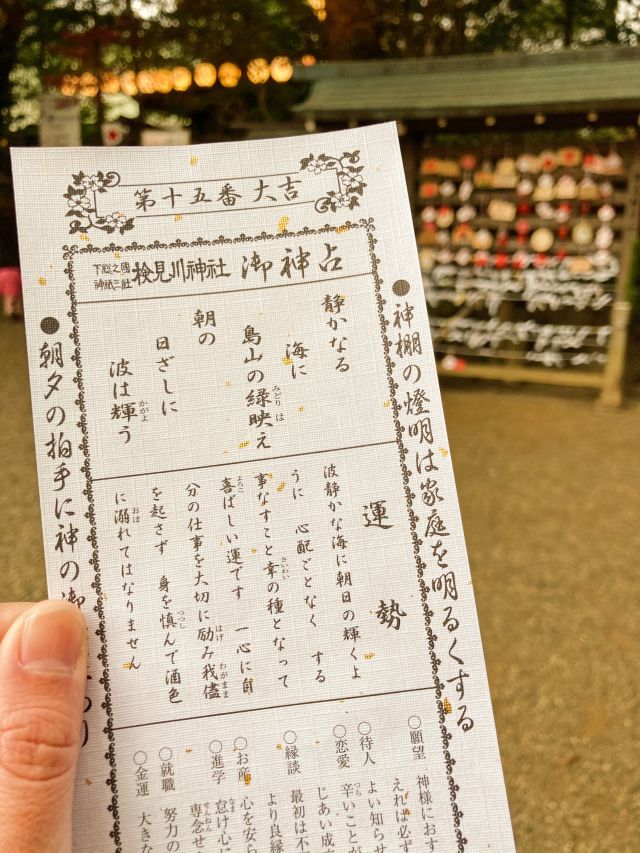 第十五番 大吉
下総之國
神祇三社
検見川神社 御神占
●神棚の燈明は家庭を明るくする
静かなる
海に
島山の緑映え
朝の
日ざしに
波は輝う
運勢
波静かな海に朝日の輝くよ
うに 心配ごとなく する
事なすこと幸の種となって
喜ばしい運です 一心に自
分の仕事を大切に励み我儘
を起さず 身を慎んで酒色
に溺れてはなりません
○願望 神様におす
えれば必ず
○待人 よい知らせ
○恋愛 辛いことが
じあい成
○縁談 最初は不
より良縁
○お産 心を安ら
○進学 怠け心に
専念せ
○就職 努力の
○金運 大きな
●朝夕の拍手に神の御